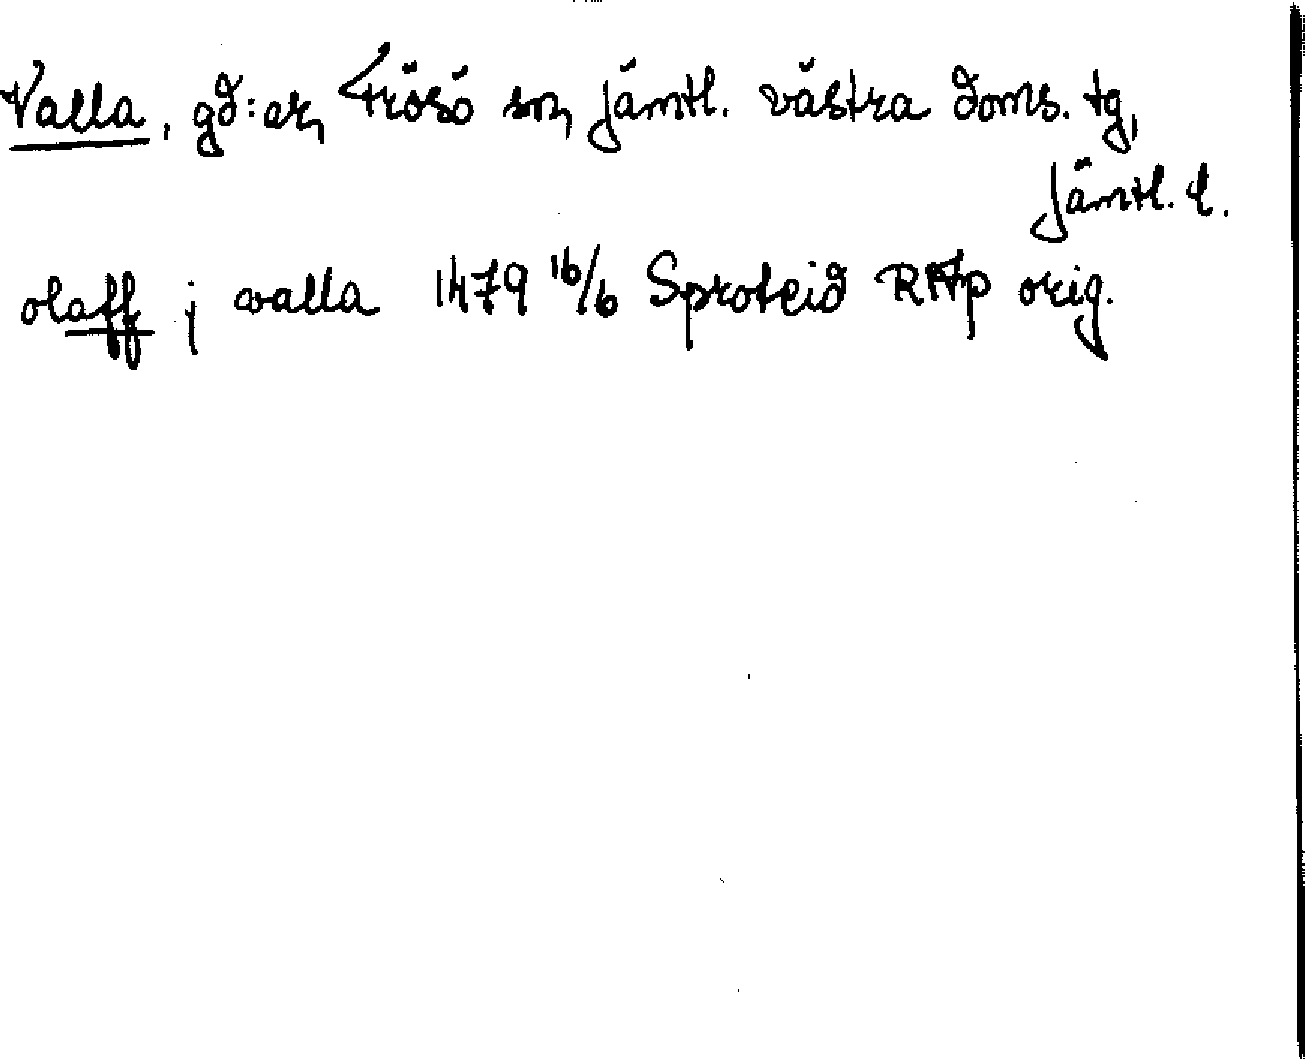 Valla, gd:ar, Frösö sn, Jämtl. västra doms. tg,
Jämtl. l.
olaff j walla 1479 16/6 Sproteid RAp orig.